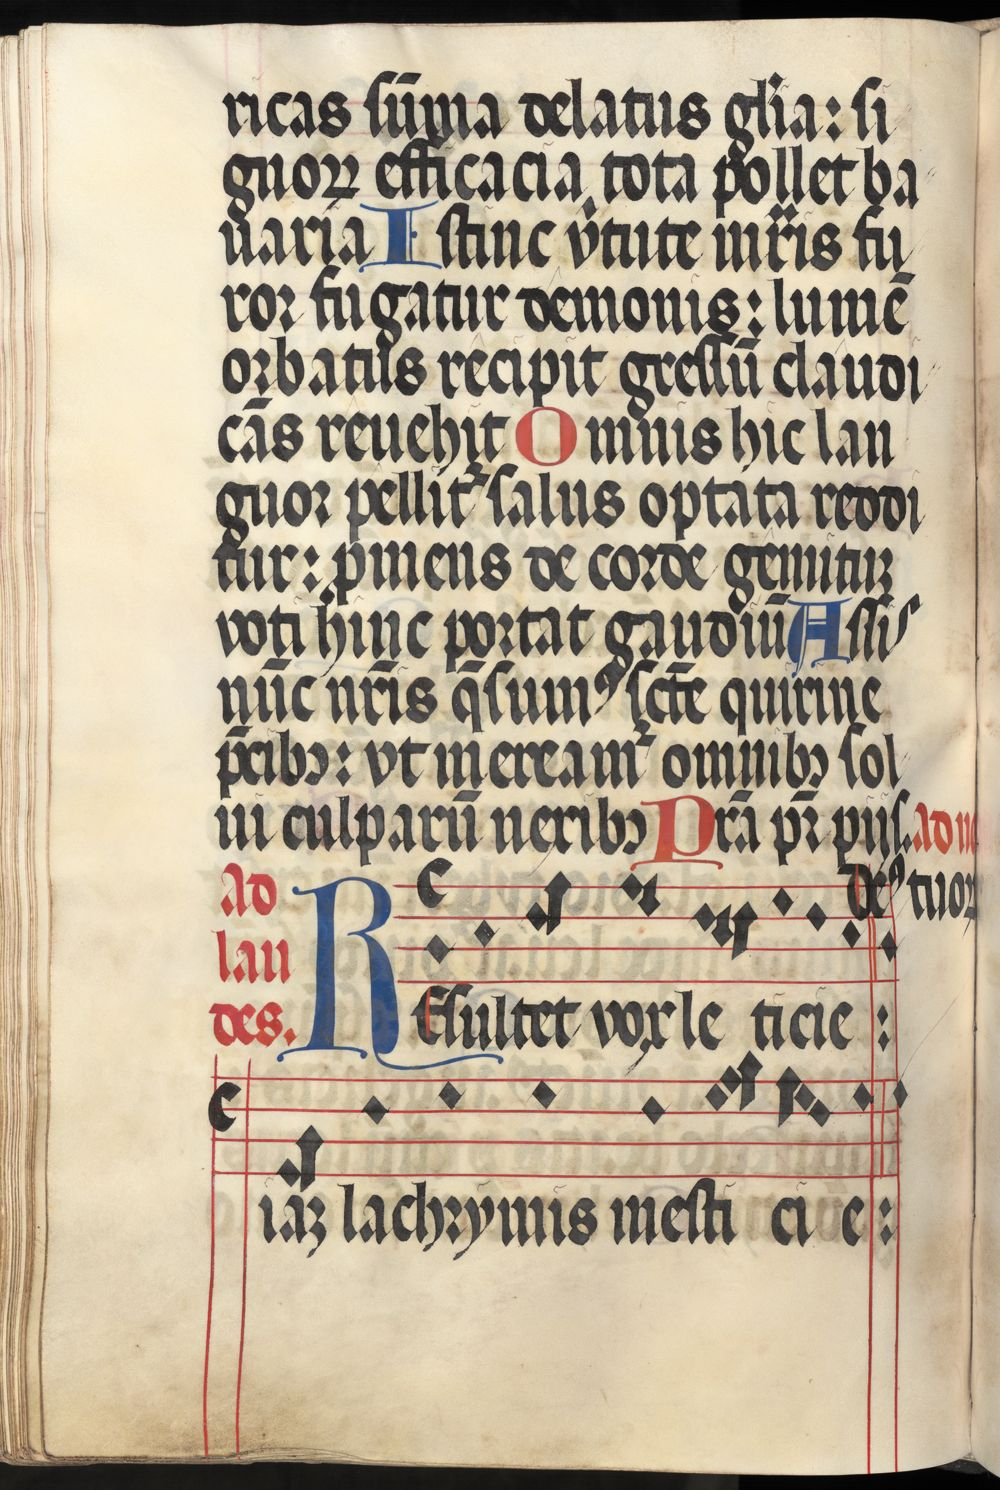 ricas sūma delatus gl̄ia: si
gnoꝝ efficacia tota pollet ba
uaria Istinc v̓tute mr̄is fu
ror fugatur demonis: lumē
orbatus recipit gressū claudi
cās reuehit Omnis hic lan
guor pellit᷑ salus optata reddi
tur: p̄mens de corde gemitꝰ
voti hinc portat gaudiū Assis
nūc nr̄is q̄sumꝰ sc̄te quirine
p̄cibꝫ: vt meream᷑ omnibꝫ sol
ui culparū nexibꝫ Pr̄a pr̄ piis. ad
ad Deꝰ tuoꝝ
lau
des. REsultet vox le ticie :
iāꝫ lachrymis mesti ci e :